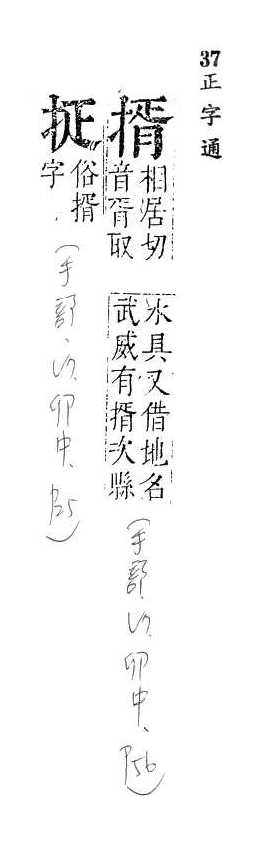 37正字通
揟
相居切
音胥取
水具又借地名
武威有揟次縣
(手部、卯中、P56)
俗揟
字
(手部、卯中、P25)